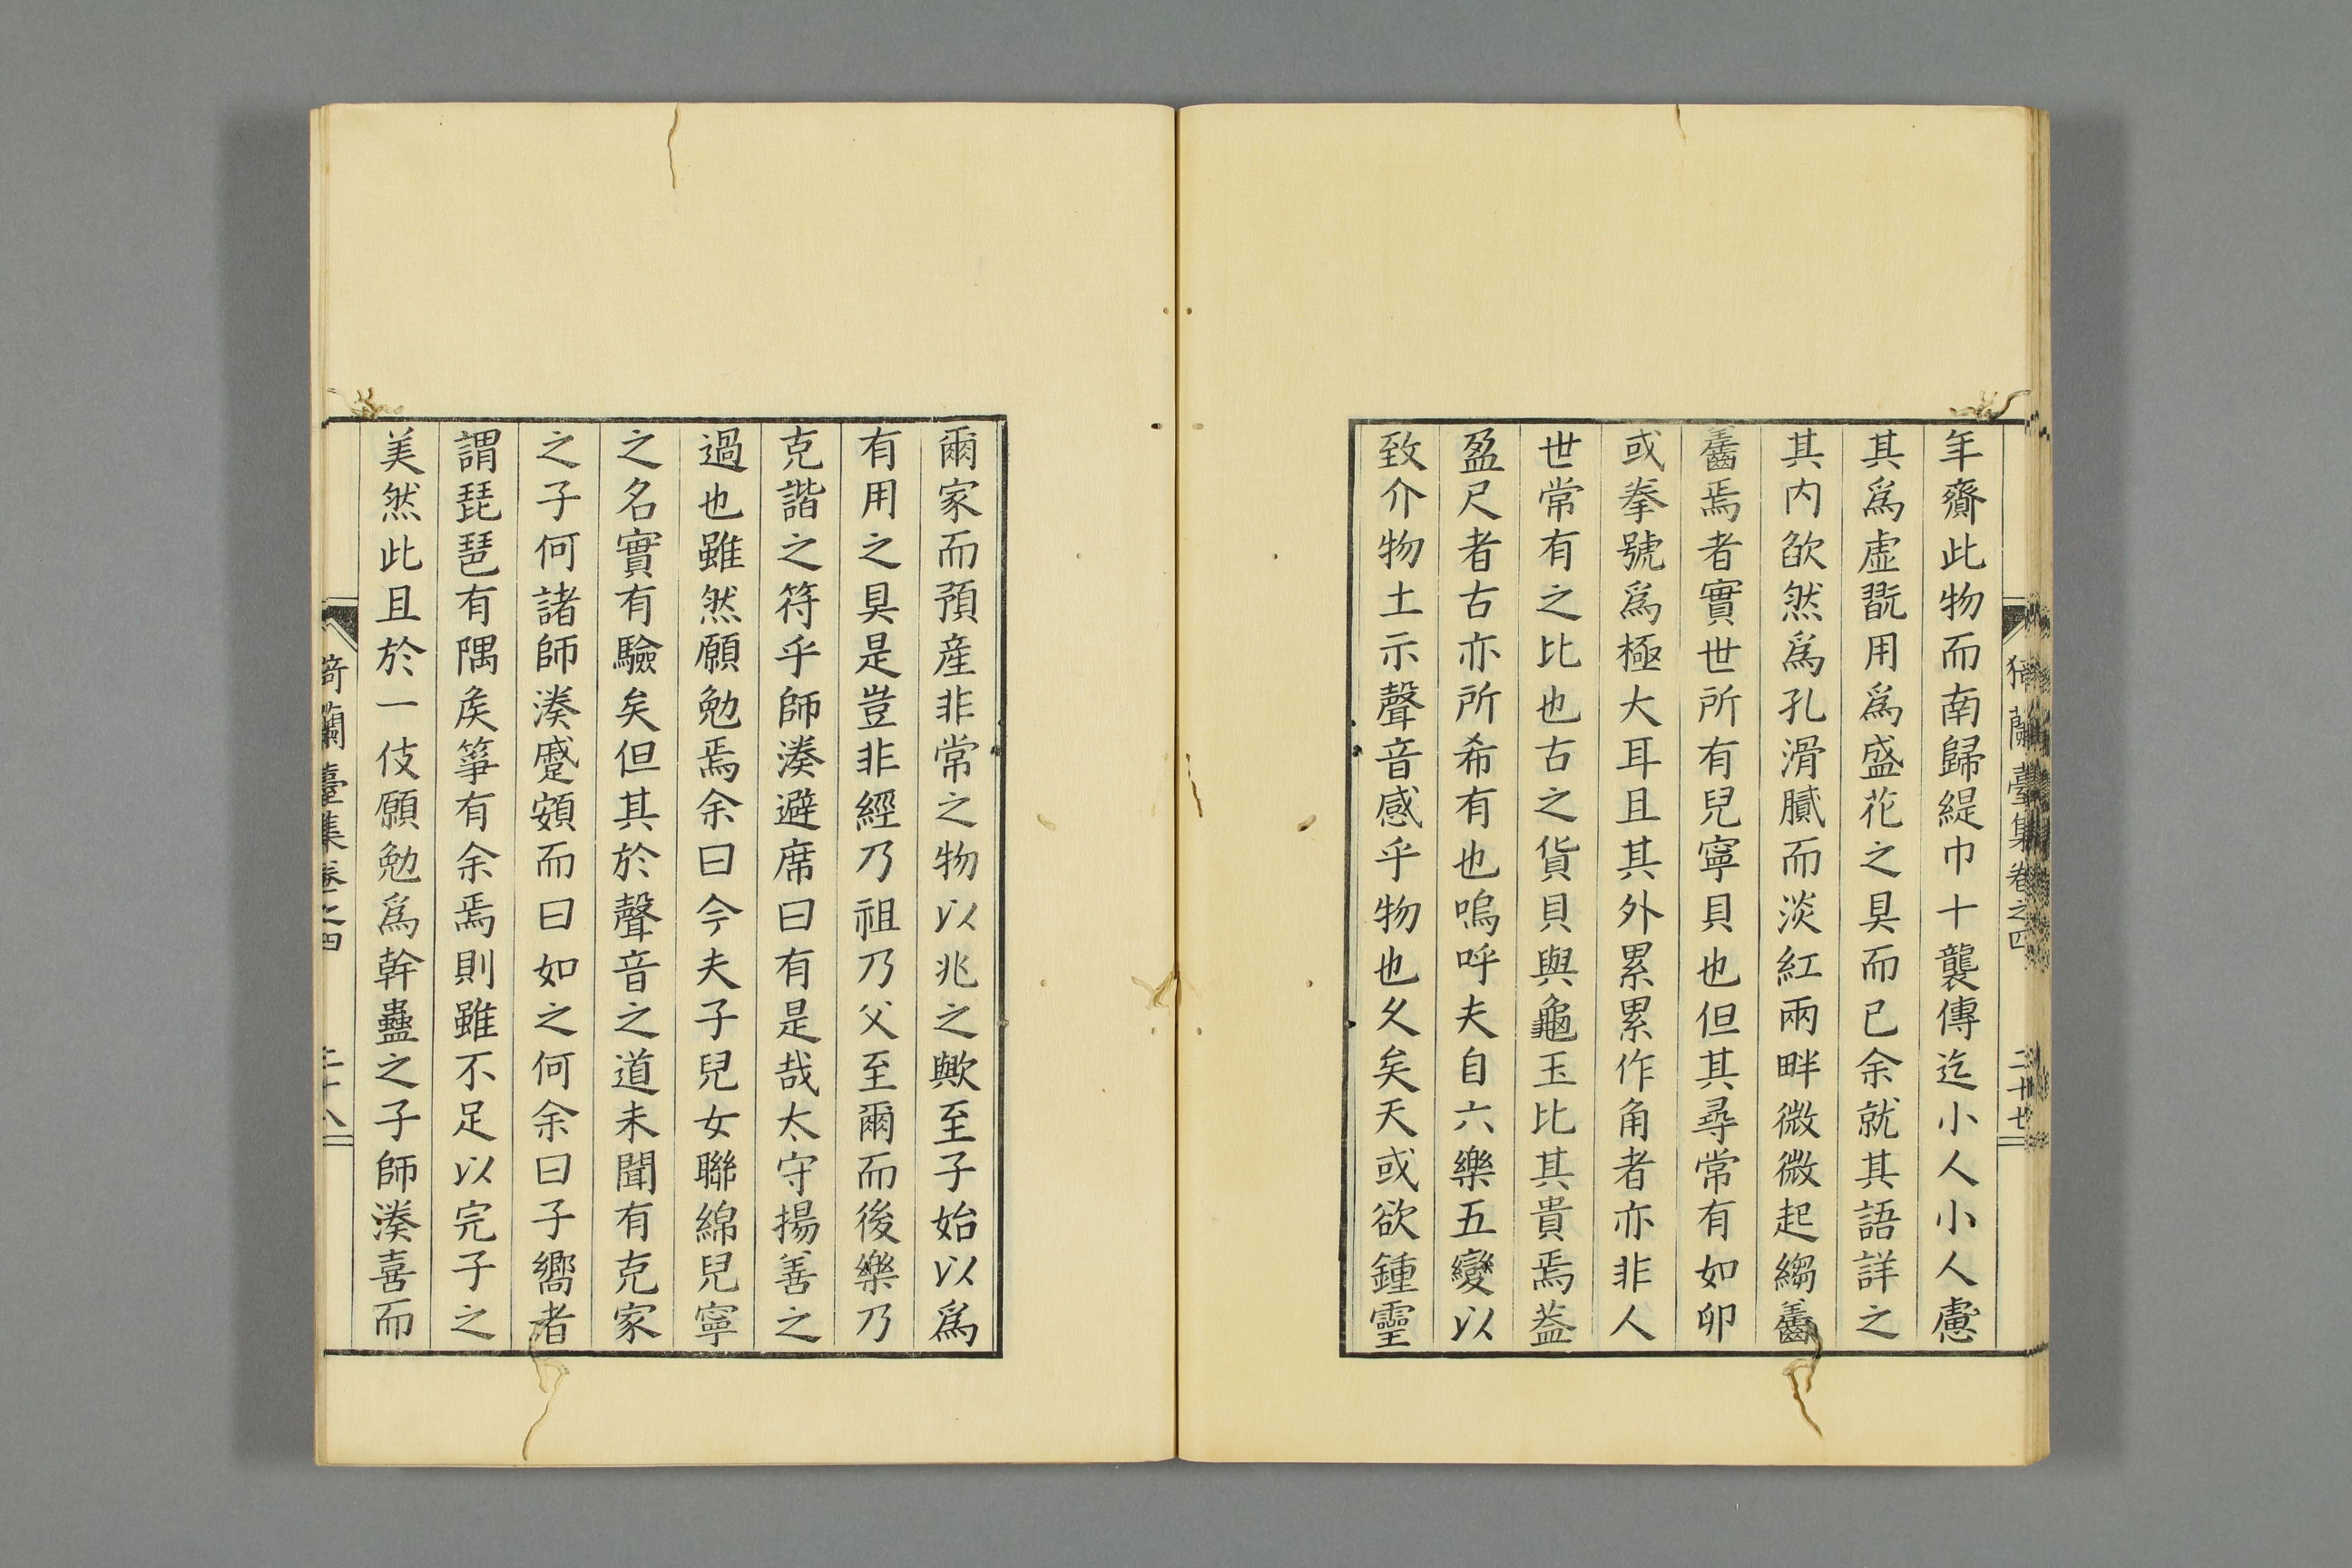 年齎此物而南歸緹巾十襲傳迄小人小人慮
其爲虛翫用爲盛花之具而已余就其語詳之
其内欿然爲孔滑膩而淡紅兩畔微微起縐
焉者實世所有兒寧貝也但其尋常有如卵
或拳號爲極大耳且其外累累作角者亦非人
世常有之比也古之貨貝與龜玉比其貴焉葢
盈尺者古亦所希有也嗚呼夫自六樂五變以
致介物土示聲音感乎物也久矣天或欲鍾靈
爾家而預産非常之物以兆之歟至子始以爲
有用之具是豈非經乃祖乃父至爾而後樂乃
克諧之符乎師湊避席曰有是哉太守揚善之
過也雖然願勉焉余曰今夫子兒女聯綿兒寧
之名實有驗矣但其於聲音之道未聞有克家
之子何諸師湊蹙頞而曰如之何余曰子嚮者
謂琵琶有隅矦箏有余焉則雖不足以完子之
美然此且於一伎願勉爲幹蠱之子師湊喜而
猗蘭臺集卷之四 二十七
猗蘭臺集卷之四 二十八